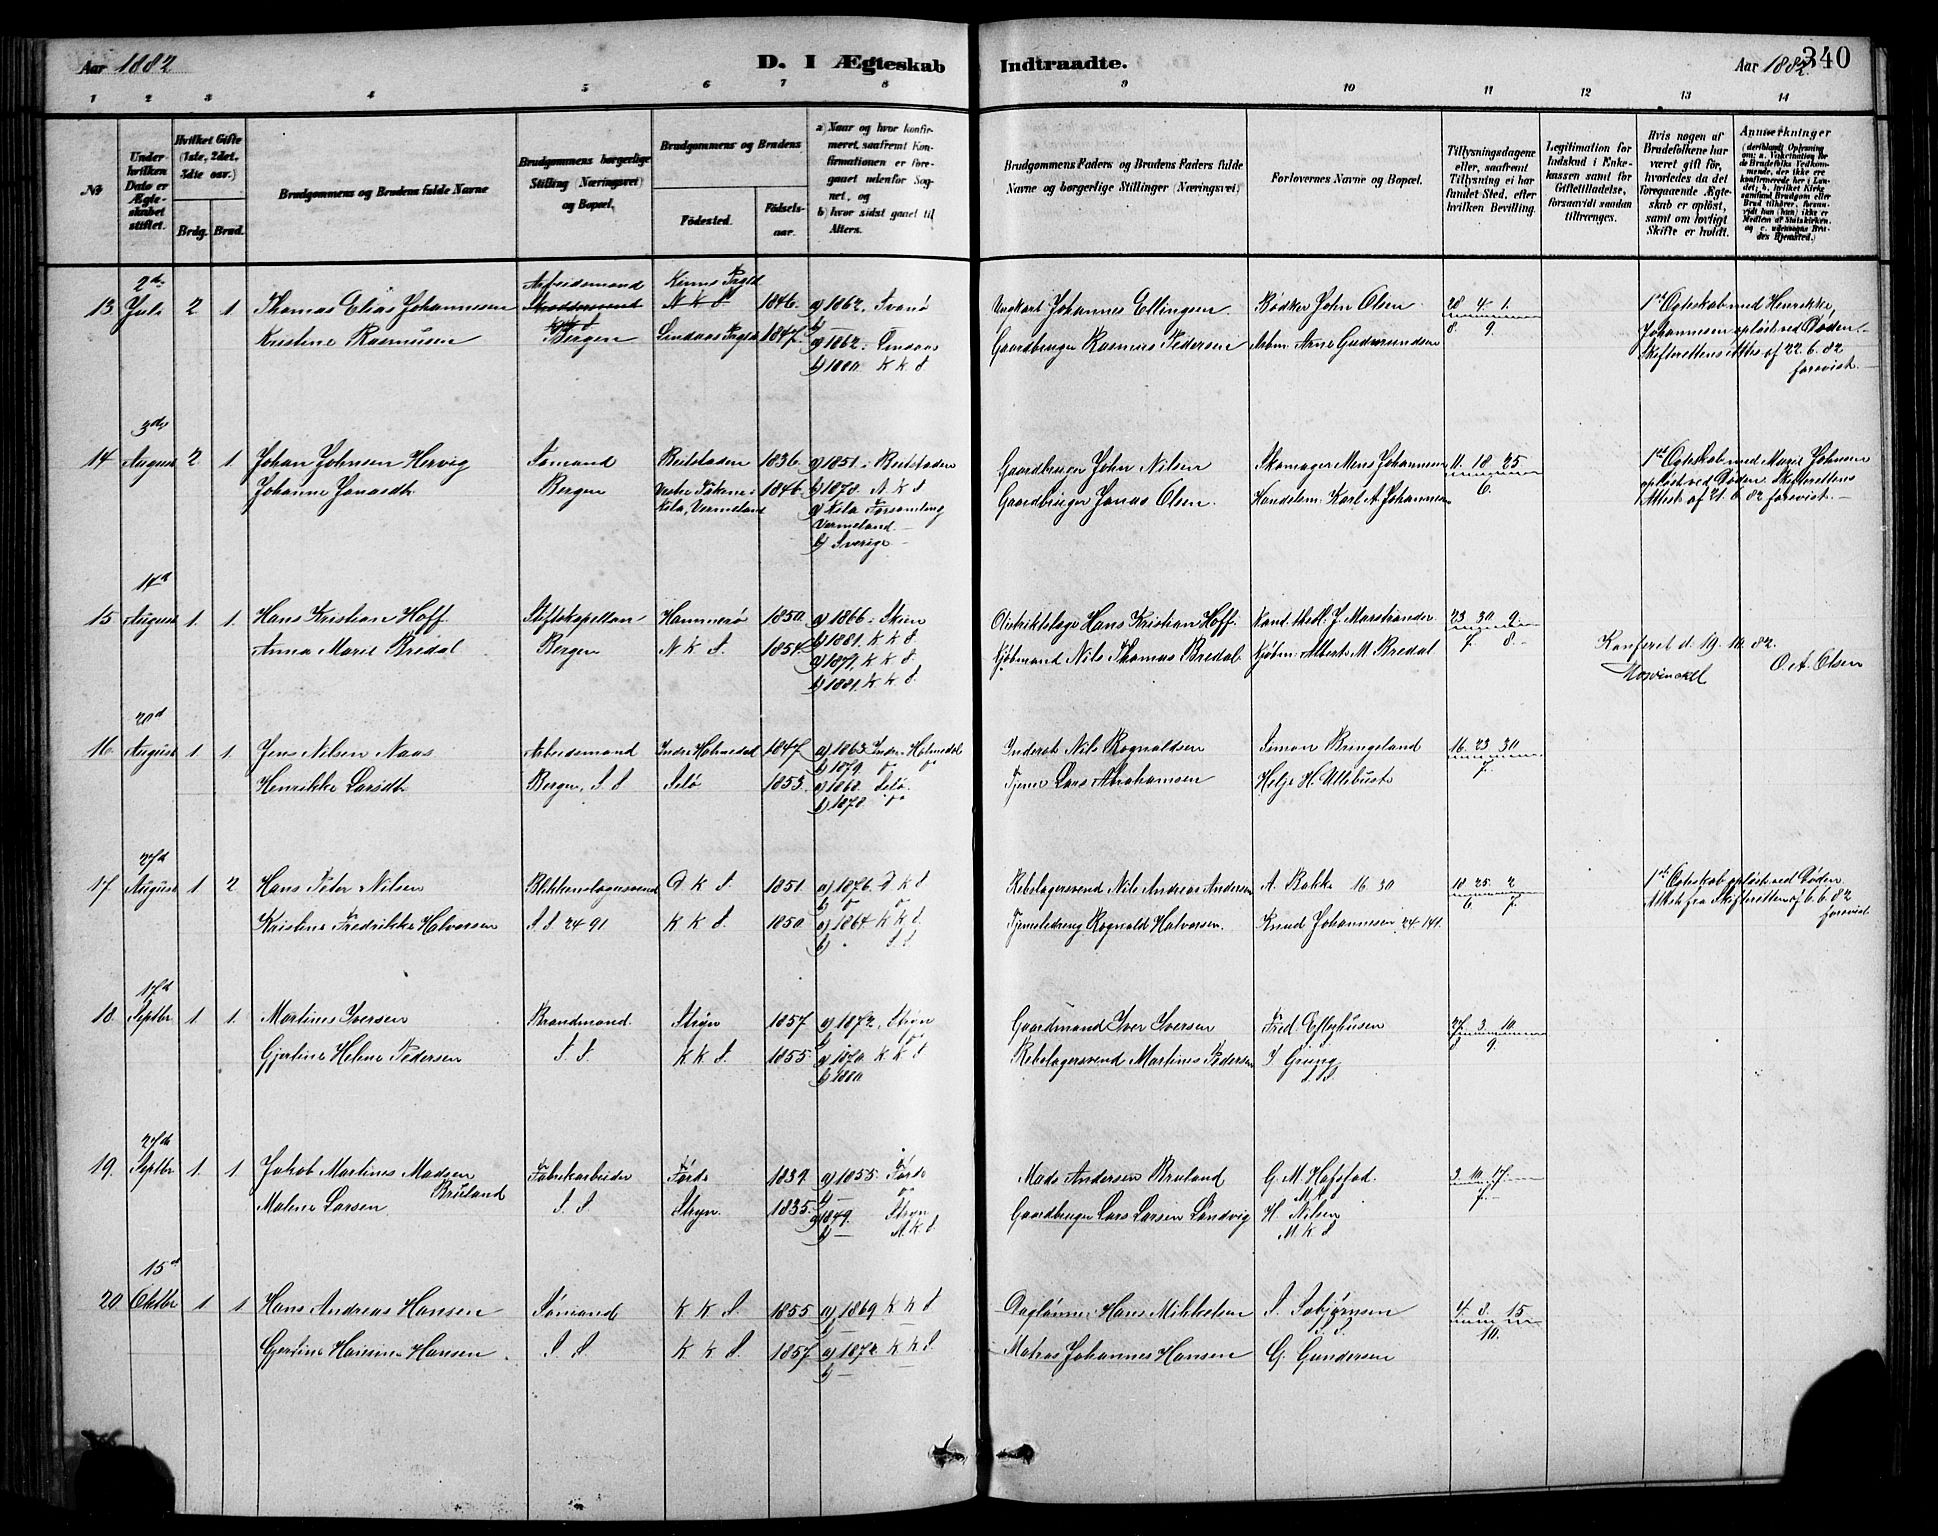 Aar 1882
D. I Ægteskab Indtraadte.
Aar 1882.
340
1 2 3 4 5 6 7 8 9 10 11 12 13 14
No
Under hvilken Dato er Ægteskabet stiftet.
Hvilket Gifte (1ste, 2det, 3die osv.)
Brdg. Brud.
Brudgommens og Brudens fulde Navne
Brudgommens borgerlige Stilling (Næringsvei) og Bopæl.
Brudgommens og Brudens
Födested.
Födselsaar.
a) Naar og hvor konfirmeret, saafremt Konfirmationen er foregaaet udenfor Sognet, og
b) hvor sidst gaaet til Alters.
Brudgommens Faders og Brudens Faders fulde Navne og borgerlige Stillinger (Næringsvei)
Forlovernes Navne og Bopæl.
Tillysningsdagene eller, saafremt Tillysning ei har fundet Sted, efter hvilken Bevilling.
Legitimation for Indskud i Enkekassen samt for Giftetilladelse, forsaavidt saadan tiltrænges.
Hvis nogen af Brudefolkene har været gift för, hvorledes da det foregaaende Ægteskab er oplöst, samt om lovligt Skifte er holdt.
Anmærkninger
13. 2den Juli 2 1 Thomas Elias Johannesen Arbeidsmand Kinns Prgld N K S 1846. a) 1862. Svanö
Kristine Rasmusen Bergen Lindaas Prgld 1847. a) 1862. Lindaas
b) 1880. K K S
Johannes Ellingsen Bödker John Olsen 28 4. 1.
8. 9.
Gaardbruger Rasmus Pedersen Arbm. Arne Gudmundsen
1ste Egteskab med Henrikke Johannesen oplöst ved Döden. Skifterettens Attes af 22. 6. 82 forevist.
14. 3die August 2. 1. Johan Johnsen Hervig Sömand Beitstaden 1836. a) 1851. Beitstaden
Johanne Jonasdtr. Bergen Vestre i Kila, Vermeland 1846. b) 1878. N K S
a) Kila Forsamling Vermeland.
b) Sverige
Gaardbruger John Nilsen Skomager Mons Johannesen 11. 18 25
6.
Gaardbruger Jonas Olsen. Handelsm. Karl A. Johannesen
1ste Egteskab med Marie Johnsen oplöst ved Döden Skifterettens Attest af 21. 6. 82 forevist.
15. 14d August 1. 1. Hans Kristian Hoff. Stiftskapellan Hammerö 1850. a) 1866. Skien
Anna Marie Bredal Bergen N K S. 1854. b) 1881. K K S
a) 1871. K K S.
b) 1881. K K S.
Distriktslæge Hans Kristian Hoff. Kand. theol. J. Marstrander 23 30 9.
7. 8.
Kjöbmand Nils Thomas Bredal. Kjöbm. Alberts M. Bredal
Konfereret d. 19. 10. 82.
O. A. Olsen
16. 20d August 1. 1. Jens Nilsen Naas Arbeidsmand Indre Holmedal 1847. a) 1863. Indre Holmedal
b) 1879.
Henrikke Larsdtr Bergen, S S Selö 1853. a) 1868. Selö.
b) 1878.
Inderst Nils Rognaldsen Simon Bringeland 16. 23 30
7.
Tjener Lars Abrahamsen Helje H. Ullebust
17. 27d August 1. 2 Hans Peter Nilsen Blikkenslagersvend D K S. 1851. a) 1876. D K S
Kristine Fredrikke Halvorsen S S 24 91 K K S. 1850. a) 1864. K K S.
b) S S.
Rebslagersvend Nils Andreas Andersen A. Bakke 16. 30 18 25. 2
6 7.
Tjenestedreng Rognald Halvorsen. Knud Johannesen 24 141.
1ste Egteskab oplöst ved Döden. Attest fra Skifteretten af 6. 6. 82 forevist.
18. 17d Septbr 1. 1. Martines Iversen Brandmand. Stryn 1857. a) 1872. Stryn
Gjertine Helene Pedersen S. S. K K S. 1855. a) 1870. K K S
b) 1880.
Gaardmand Iver Iversen 27. 3. 10.
8 9.
Rebslagersvend Martines Pedersen I Grung
S. S.
19. 27de Septbr 1. 1. Jakob Martines Madsen Bruland Fabrikarbeider Förde 1839. a) 1855. Förde
Malene Larsen S. S Stryn. 1835. a) 1849. Stryn
b) — N. K S.
Mads Andersen Bruland G. M. Hafstad. 3. 10. 17.
7.
Gaardbruger Lars Larsen Sandvig H. Nilsen
M K S
20 15d Oktbr 1 1 Hans Andreas Hansen Sömand K K S. 1855 a) 1869. K K S
Gjertine Hansine Hansen S. S. K K S. 1857. a) 1872. K K S.
b) —
Daglönner Hans Mikkelsen S. Sobjörnsen 4. 8. 15
S. S. 10.
Matros Johannes Hansen G. Gundersen